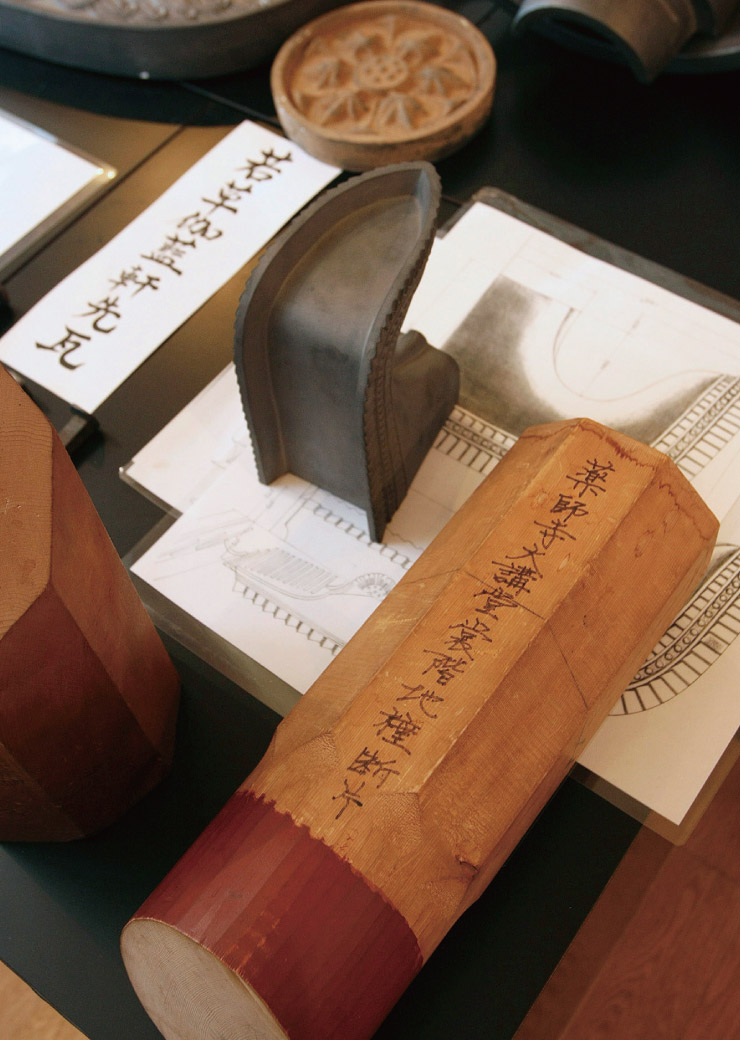 若草伽藍軒先瓦
薬師寺大講堂裳階地種断片